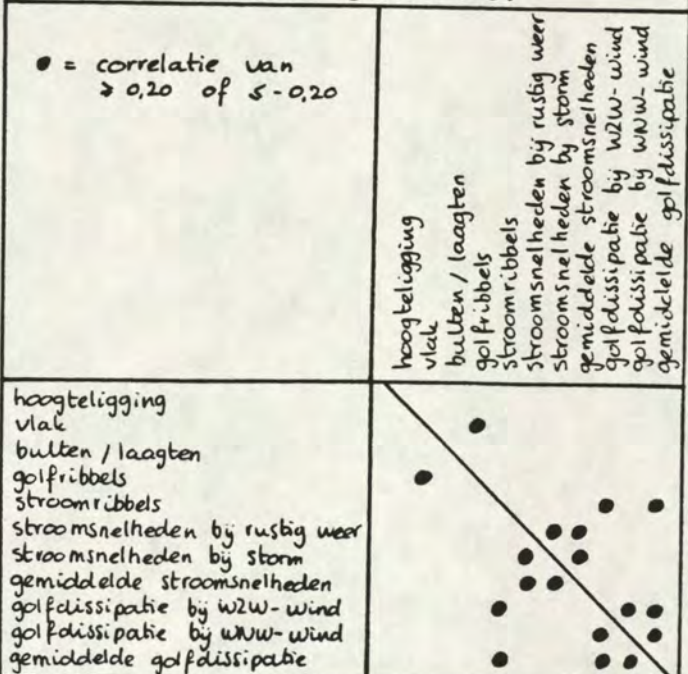 • = correlatie van
≥ 0,20 of ≤ -0,20
hoogteligging
vlak
bulten / laagten
golfribbels
stroomribbels
stroomsnelheden bij rustig weer
stroomsnelheden by storm
gemiddelde stroomsnelheden
golfdissipatie bij WZW-wind
golfdissipatie by WNW-wind
gemiddelde golfdissipatie
hoogteligging
vlak
bulten / laagten
golfribbels
stroomribbels
stroomsnelheden bij rustig weer
stroomsnelheden bij storm
gemiddelde stroomsnelheden
golfdissipatie bij WZW-wind
golfdissipatie bij WNW-wind
gemiddelde golfdissipatie